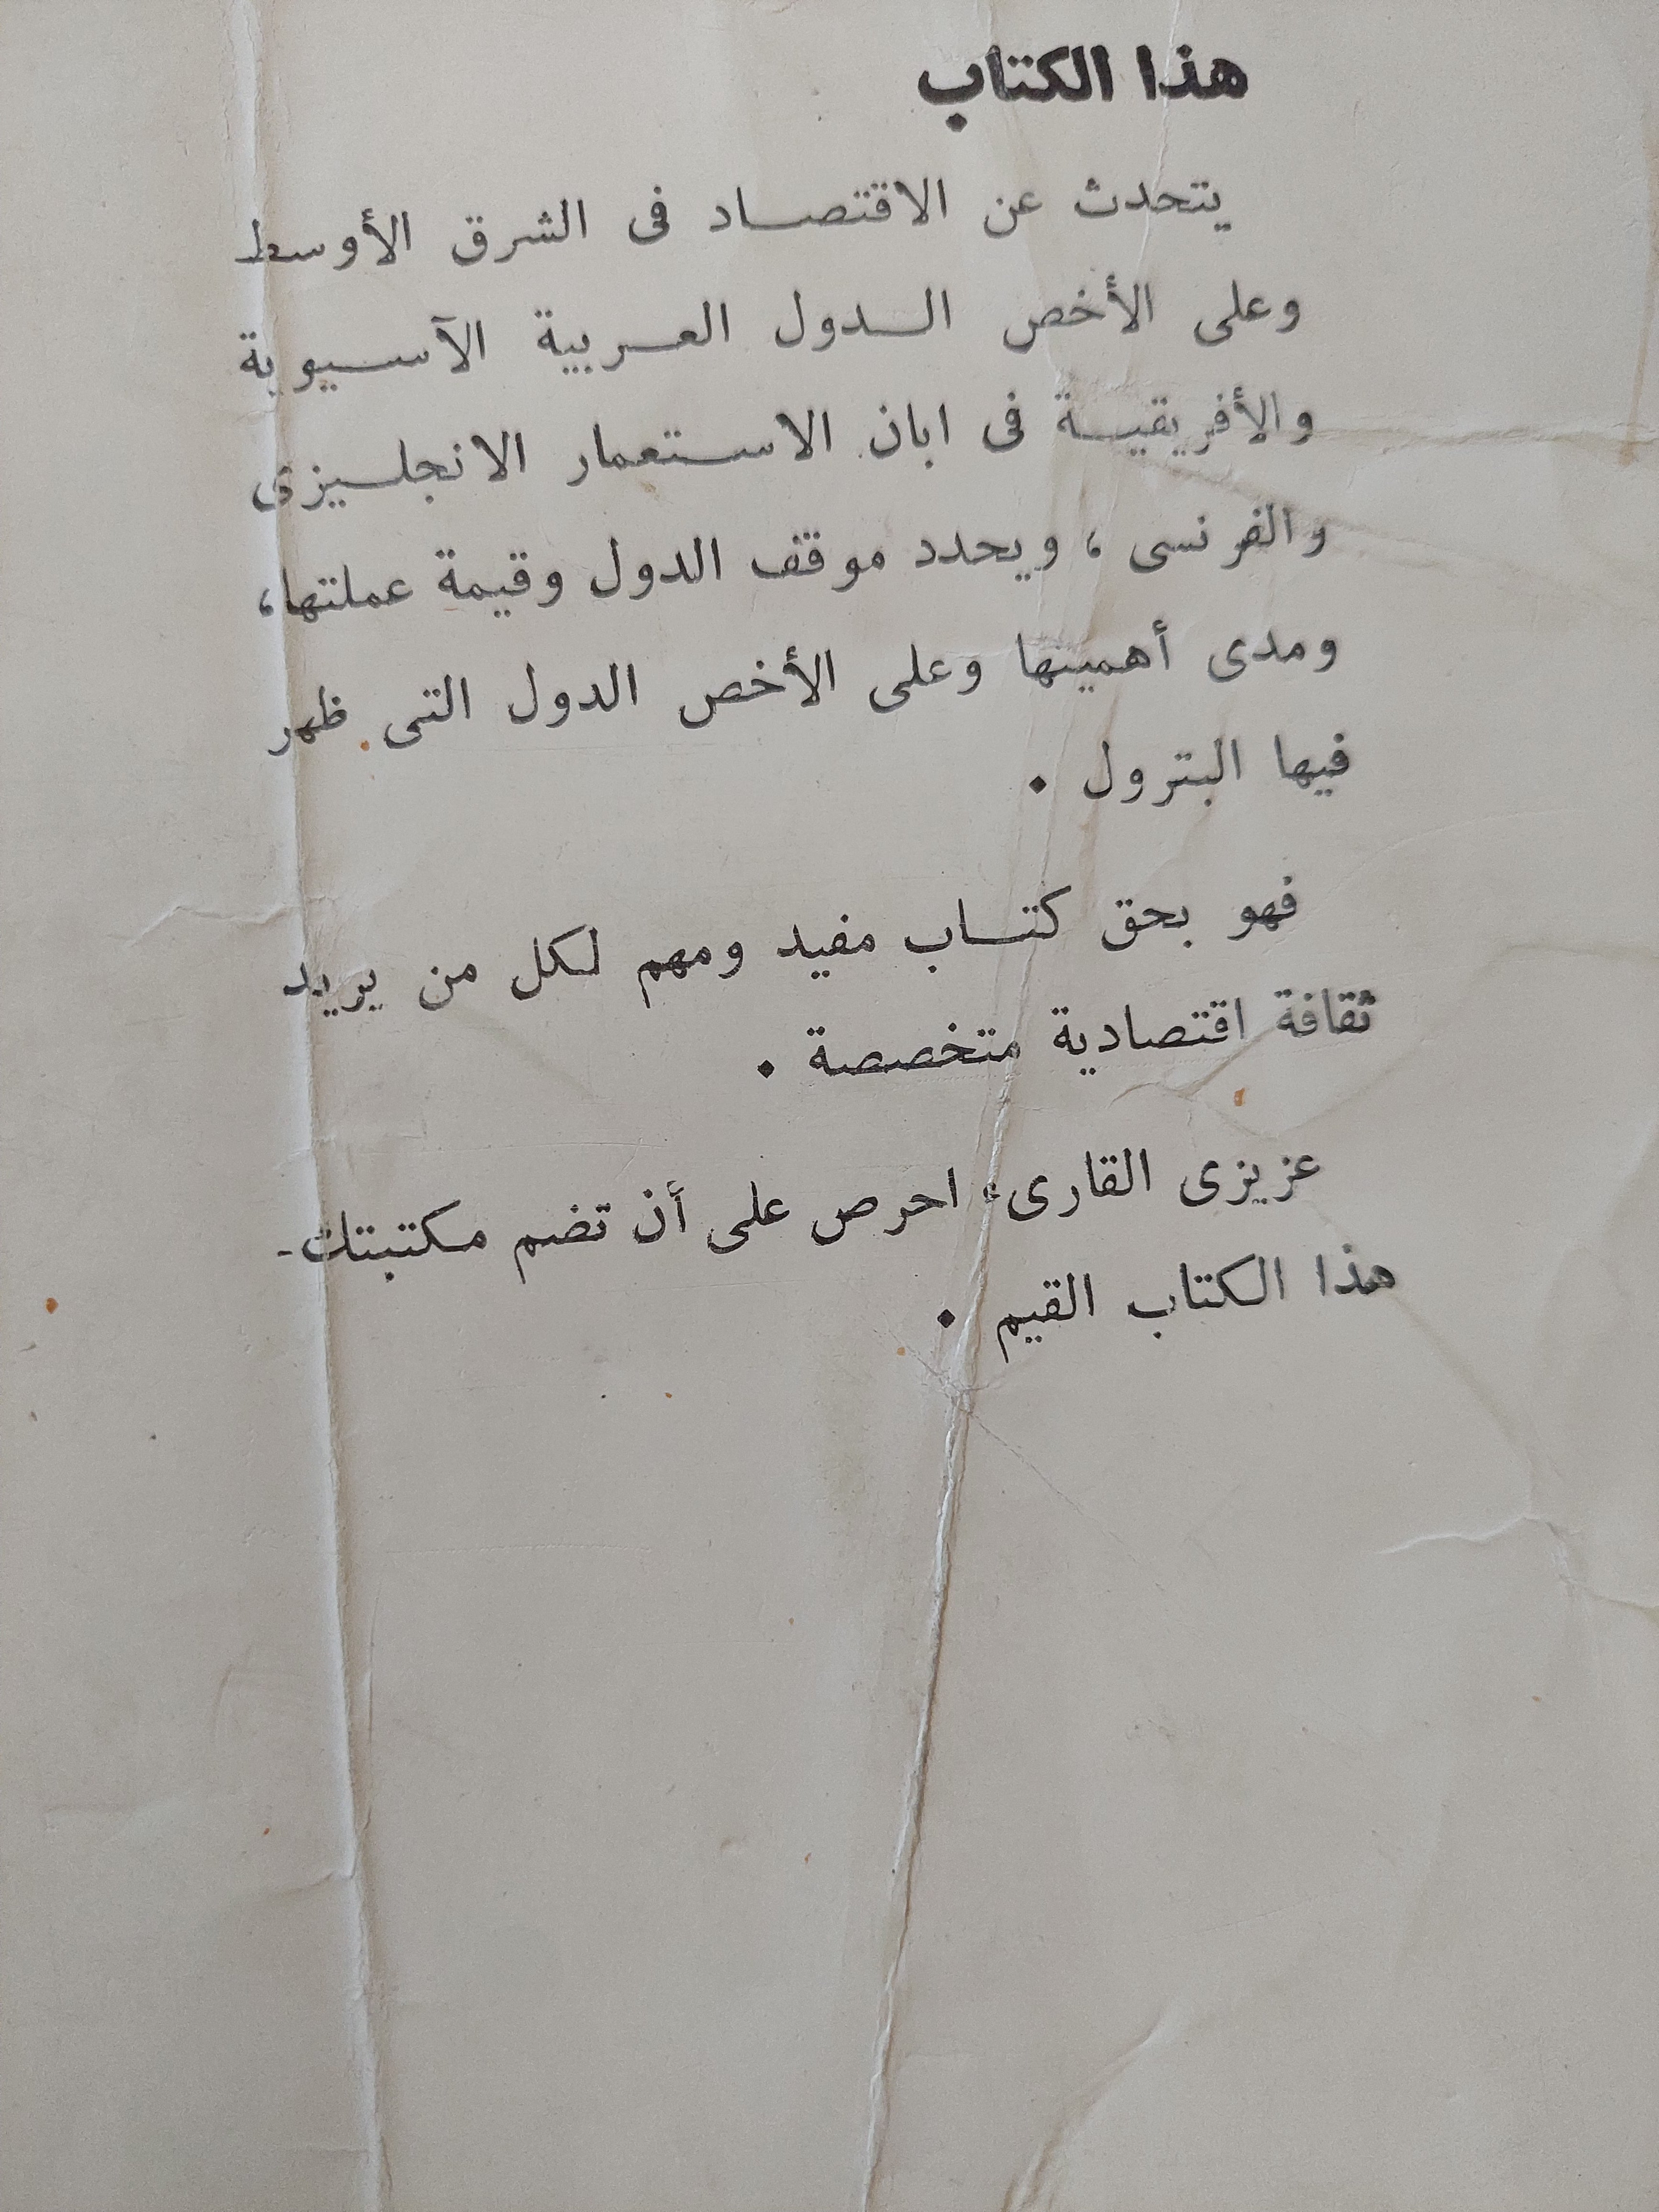 هذا الكتاب
يتحدث عن الاقتصاد فى الشرق الأوسط
وعلى الأخص الدول العربية الآسيوية
والأفريقية فى ابان الاستعمار الانجليزى
والفرنسى ، ويحدد موقف الدول وقيمة عملتها،
ومدى أهميتها وعلى الأخص الدول التى ظهر
فيها البترول .
فهو بحق كتاب مفيد ومهم لكل من يريد
ثقافة اقتصادية متخصصة .
عزيزى القارىء احرص على أن تضم مكتبتك
هذا الكتاب القيم .